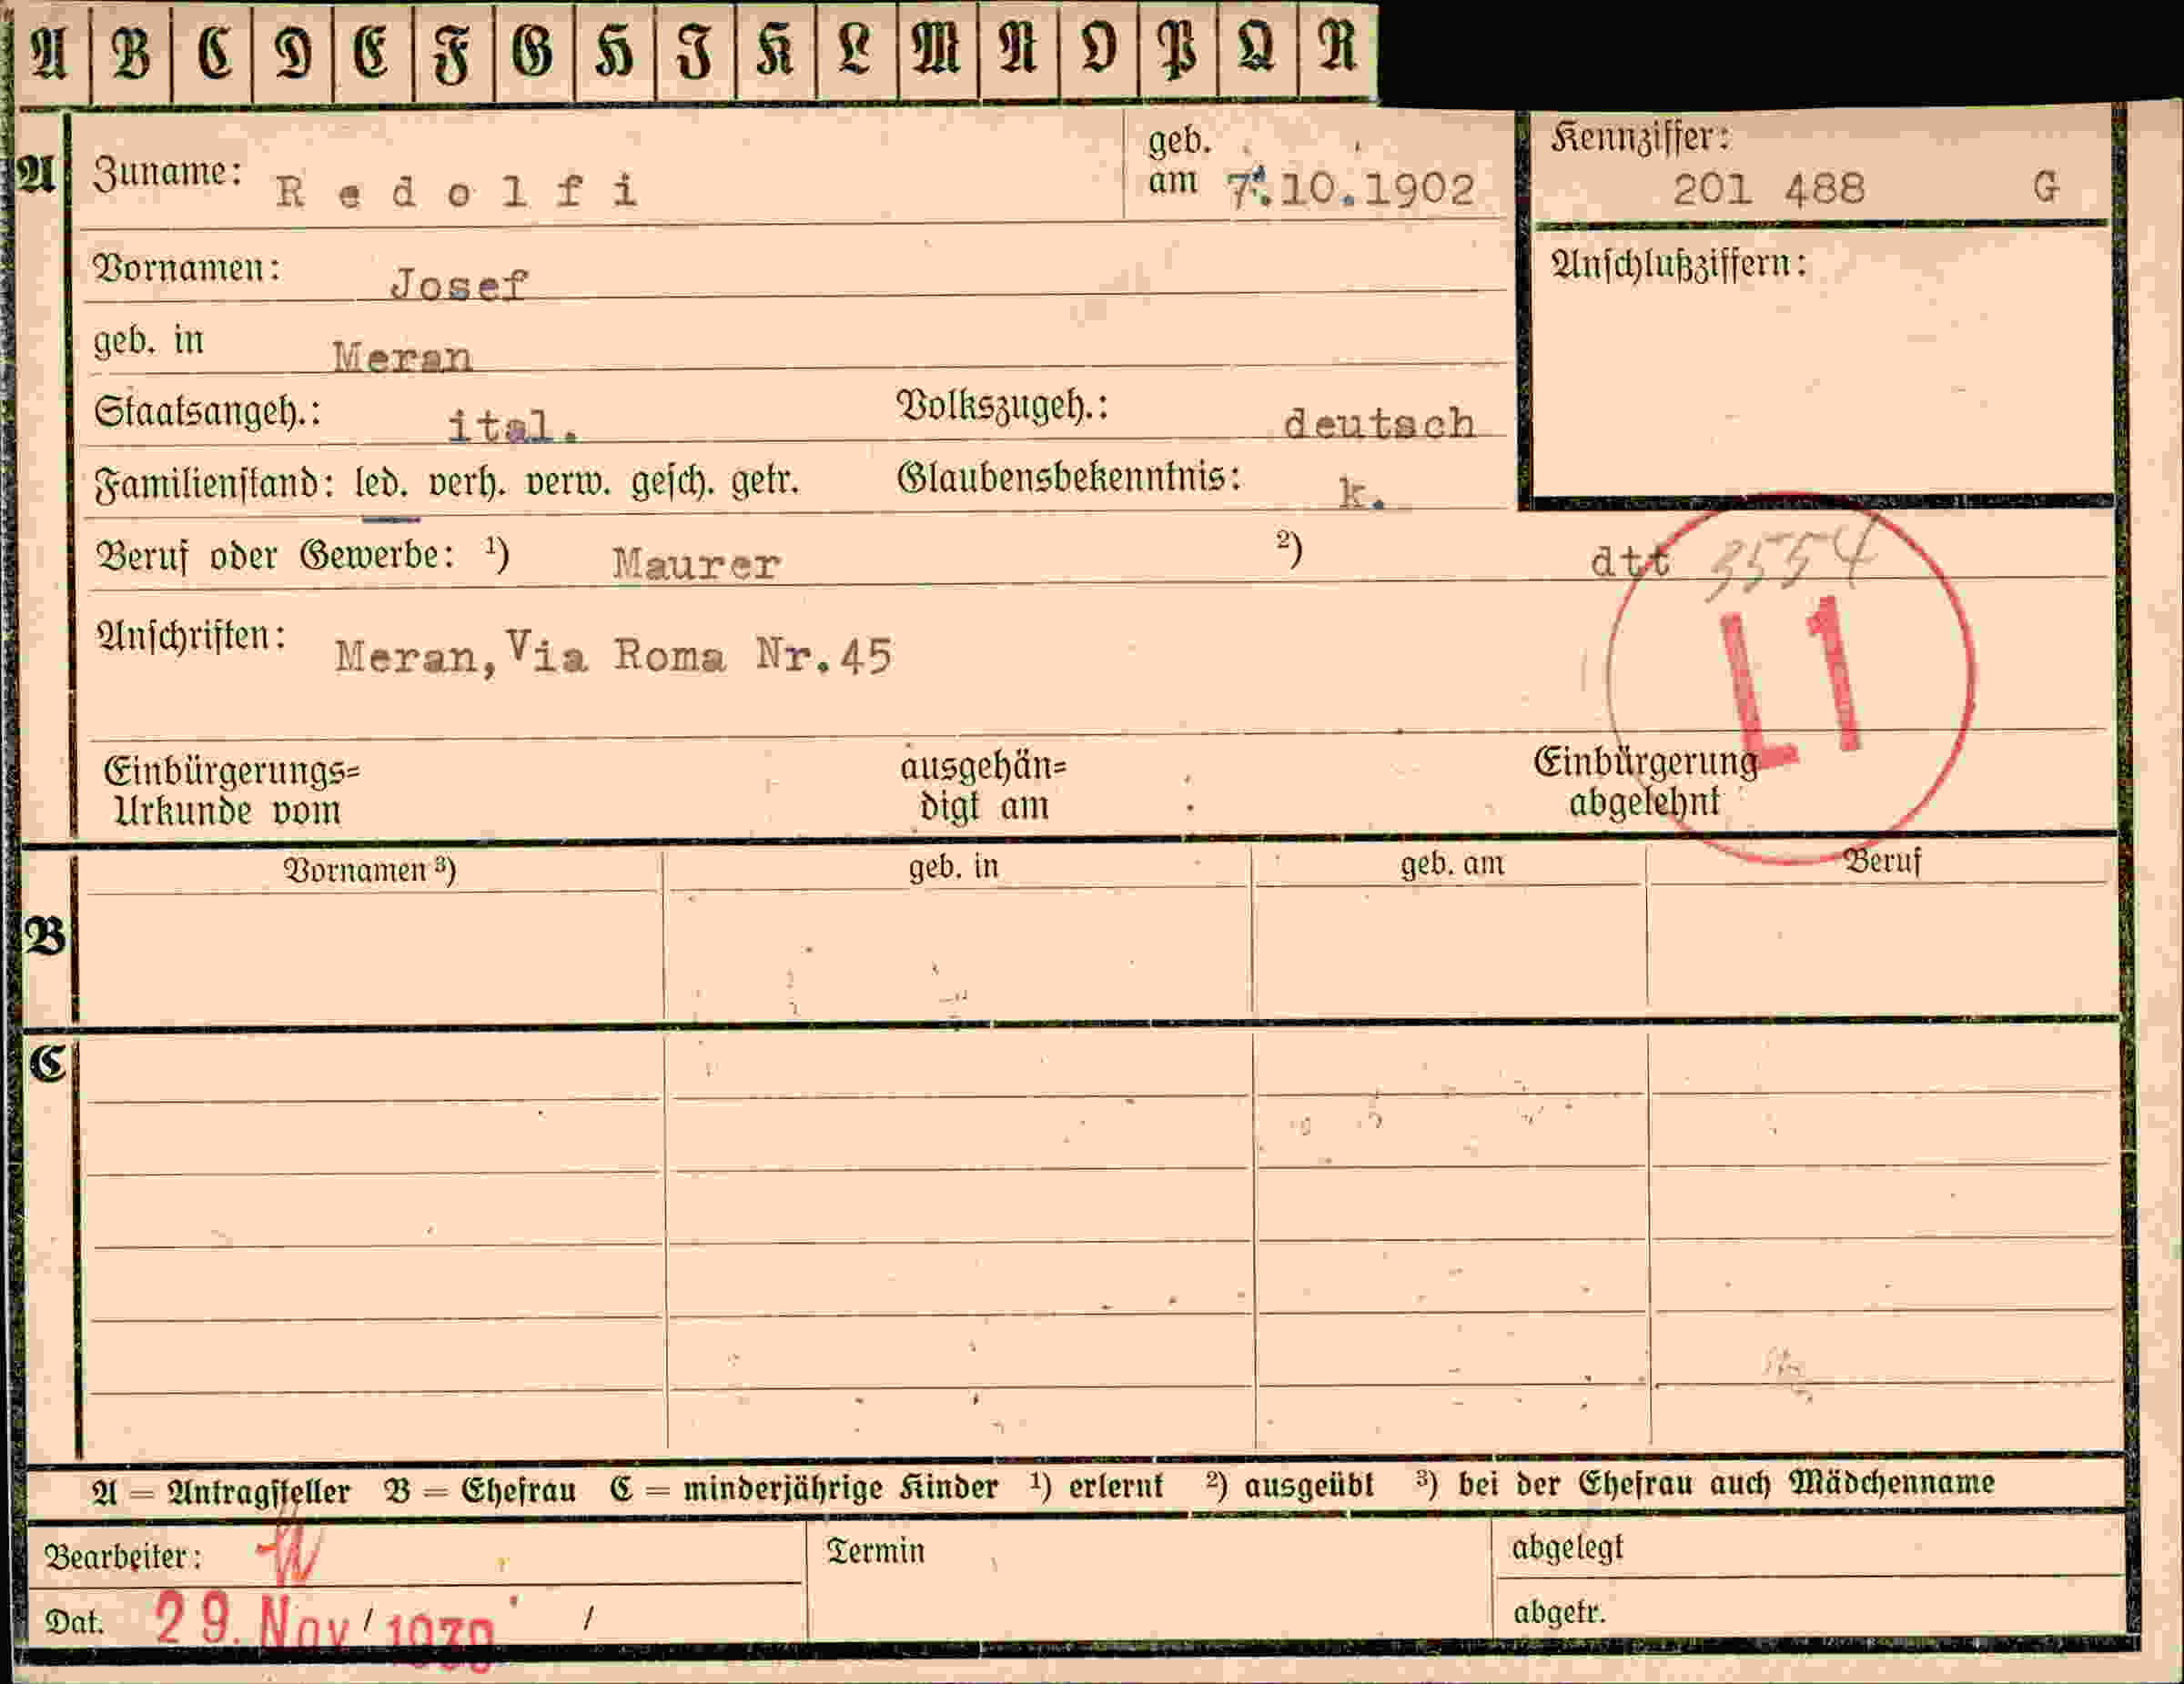 A B C D E F G H J K L M N O P Q R
A Zuname: Redolfi geb. am 7.10.1902 Kennziffer: 201 488 G
Vornamen: Josef Anschlußziffern:
geb. in Meran
Staatsangeh.: ital. Volkszugeh.: deutsch
Familienstand: led. verh. verw. gesch. getr. Glaubensbekenntnis: k.
Beruf oder Gewerbe: 1) Maurer 2) dtt 3554
Anschriften: Meran, Via Roma Nr. 45
L1
Einbürgerungs= ausgehän= Einbürgerung
Urkunde vom digt am abgelehnt
Vornamen 3) geb. in geb. am Beruf
B
C
A = Antragsteller B = Ehefrau C = minderjährige Kinder 1) erlernt 2) ausgeübt 3) bei der Ehefrau auch Mädchenname
Bearbeiter: Termin abgelegt
Dat. 29. Nov / 1939 / abgetr.